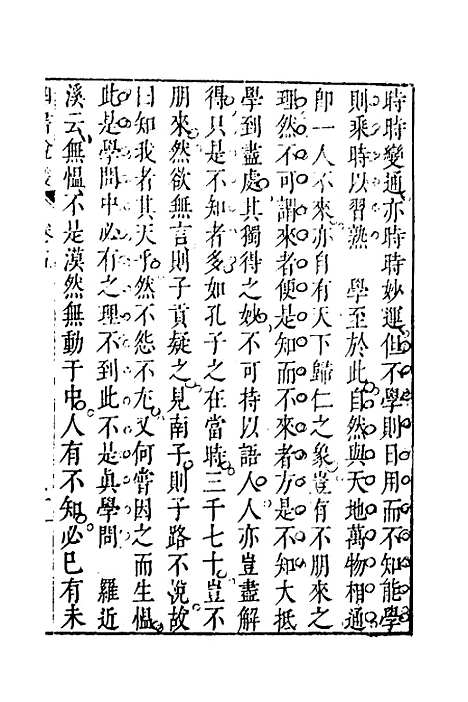 時時變通亦時時妙運但不學則日用而不知能學
則乘時以習熟　學至於此自然與天地萬物相通
卽一人不來亦自有天下歸仁之象豈有不朋來之
理然不可謂來者便是知而不來者方是不知大抵
學到盡處其獨得之妙不可持以語人人亦豈盡解
得只是不知者多如孔子之在當時三千七十豈不
朋來然欲無言則子貢疑之見南子則子路不說故
曰知我者其天乎然不怨不尤又何嘗因之而生慍
此是學問中必有之理不到此不是眞學問　羅近
溪云無慍不是漠然無動于中人有不知必已有未
四書 卷